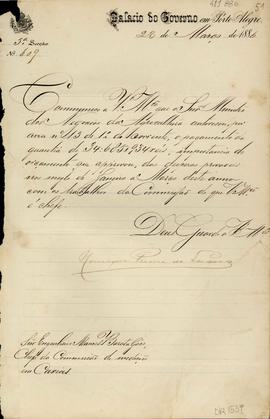 Palacio do Governo em Porto Alegre,
de Março de 188
3ª Secção
Nº 609
Communico a V. Mce que o Snr. Ministro
dos Negocios da Agricultura autorisou, por
aviso nº 113 de 1º do corrente, o pagamento da
quantia de reis, importancia do
orçamento que approvou, das
nos mezes de Janeiro a Março deste anno
com os trabalhos da Commissão de que V. Mce
é chefe.
Deus Guarde a V. Mce
Snr. Engenheiro Manoel
Chefe da Commissão de medição
em Caxias